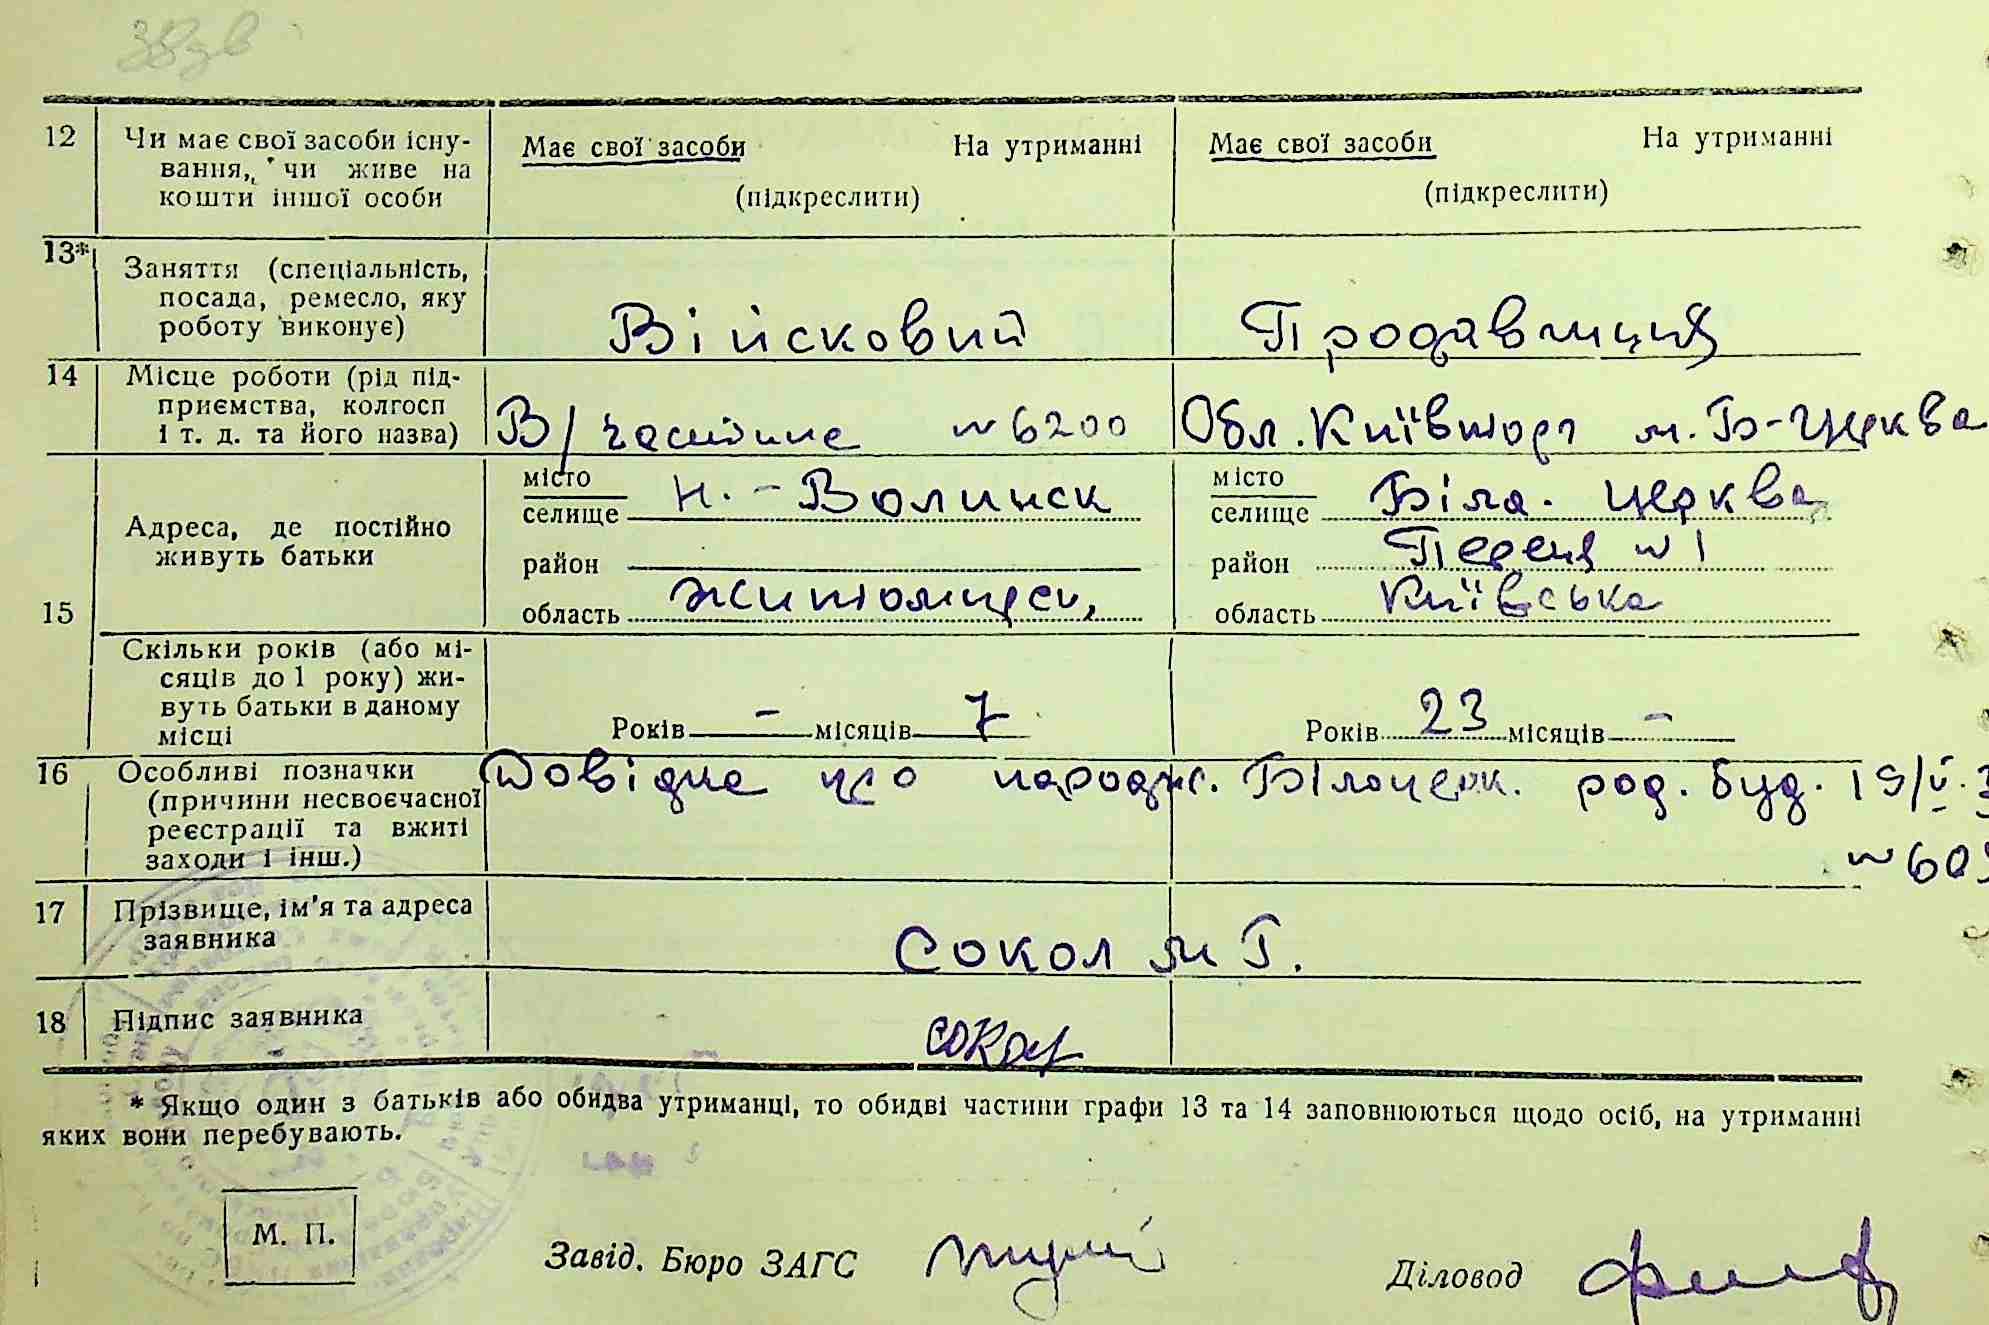 12 Чи має свої засоби існу- Має свої засоби На утриманні Має свої засоби На утриманні
вання, чи живе на
кошти іншої особи (підкреслити) (підкреслити)
13* Заняття (спеціальність,
посада, ремесло, яку
роботу виконує) Війсковий Продавщиця
14 Місце роботи (рід під-
приємства, колгосп
і т. д. та його назва) В/частина №6200 Обл. Київторг м. Б-Церква
місто Н.-Волинск місто Біла. Церква
селище селище
Адреса, де постійно
живуть батьки
район район №1
15 область Житомирск, область Київська
Скільки років (або мі-
сяців до 1 року) жи-
вуть батьки в даному
місці Років - місяців 7 Років 23 місяців -
16 Особливі позначки Довідка про народж. Білоцерк. род. буд. 19/V.3
(причини несвоєчасної
реєстрації та вжиті
заходи і інш.) №605
17 Прізвище, ім'я та адреса
заявника Сокол М Г.
18 Підпис заявника Сокол
* Якщо один з батьків або обидва утриманці, то обидві частини графи 13 та 14 заповнюються щодо осіб, на утриманні
яких вони перебувають.
М. П.
Завід. Бюро ЗАГС Діловод